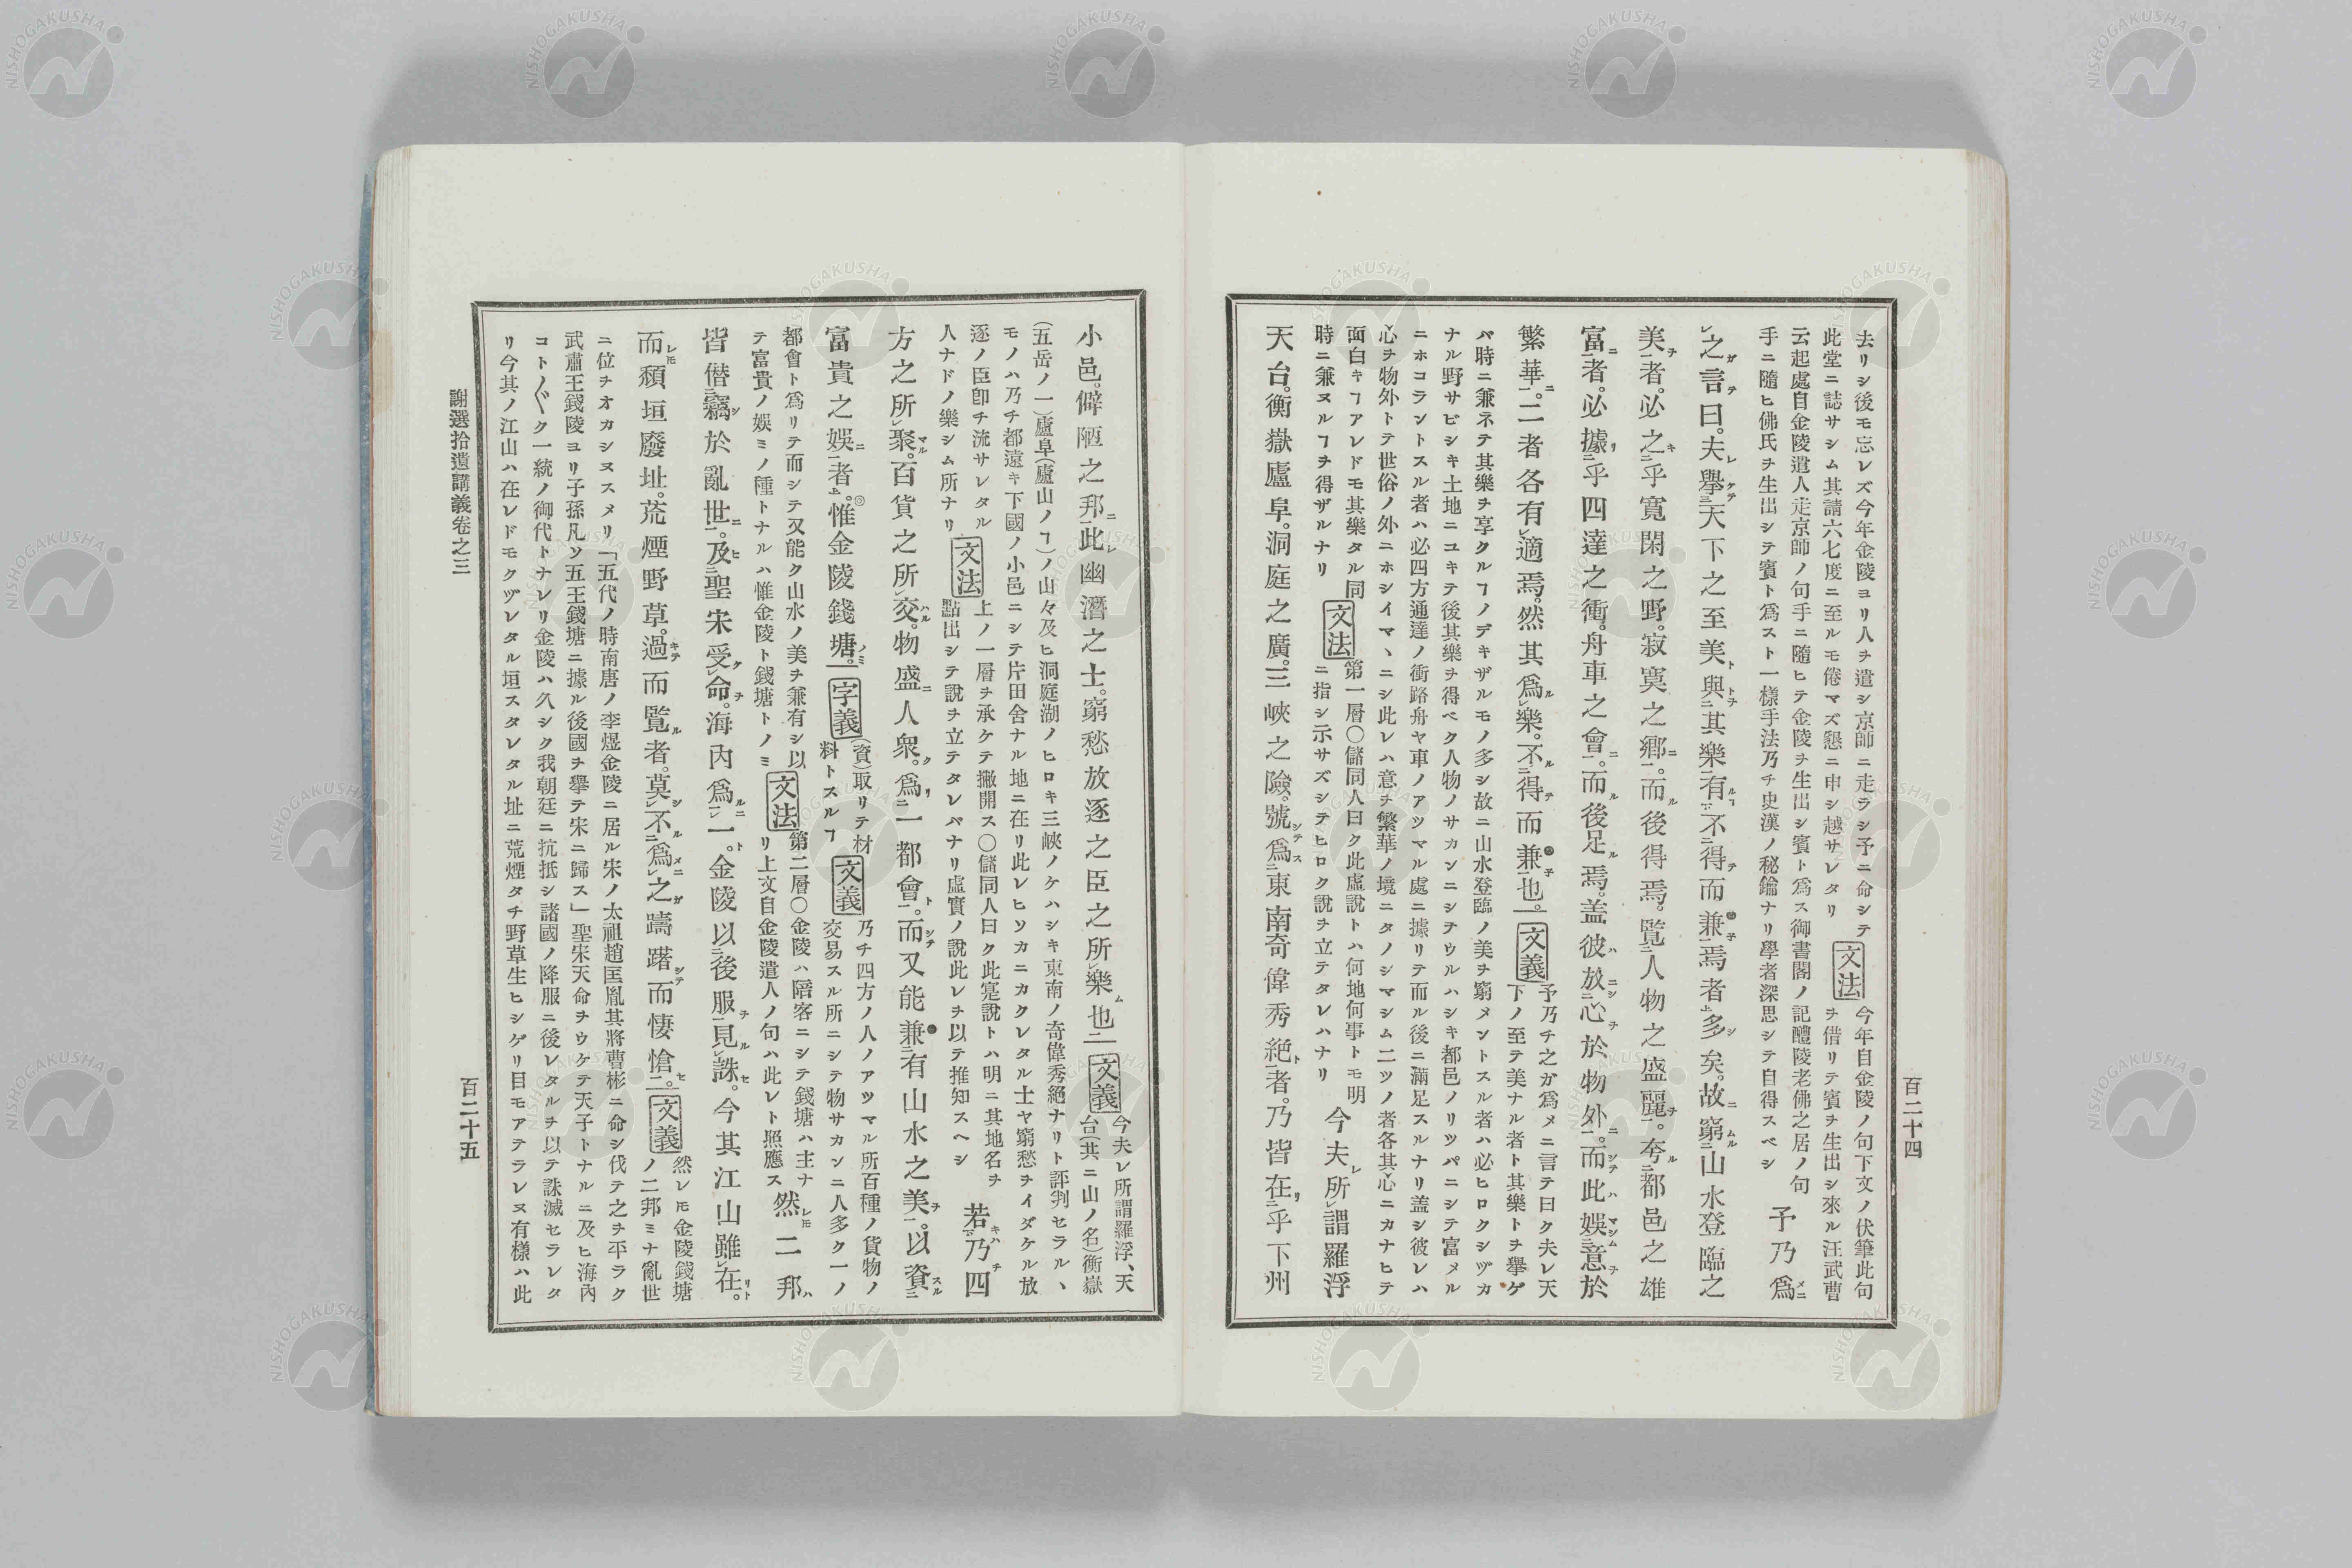 百二十四
去リシ後モ忘レズ今年金陵ヨリ人ヲ遣シ京師ニ走ラシ予ニ命シテ
此堂ニ誌サシム其請六七度ニ至ルモ倦マズ懇ニ申シ越サレタリ 文法 今年自金陵ノ句下文ノ伏筆此句
云起處自金陵遣人走京師ノ句手ニ隨ヒテ金陵ヲ生出シ賓ト爲ス御書閣ノ記醴陵老佛之居ノ句
手ニ隨ヒ佛氏ヲ生出シテ賓ト爲スト一樣手法乃チ史漢ノ秘鑰ナリ學者深思シテ自得スベシ
ヲ借リテ賓ヲ生出シ來ル汪武曹
予乃爲
之言曰。夫擧天下之至美與其樂有不得而兼焉者多矣。故窮山水登臨之
美者。必之乎寬閑之野。寂寞之鄕。而後得焉。覽人物之盛麗。夸都邑之雄
富者。必據乎四達之衝。舟車之會。而後足焉。盖彼放心於物外。而此娛意於
繁華。二者各有適焉。然其爲樂。不得而兼也。 文義 予乃チ之ガ爲メニ言テ曰ク夫レ天
下ノ至テ美ナル者ト其樂トヲ擧ゲ
バ時ニ兼ネテ其樂ヲ享クルヿノデキザルモノ多シ故ニ山水登臨ノ美ヲ窮メントスル者ハ必ヒロクシヅカ
ナル野サビシキ土地ニユキテ後其樂ヲ得ベク人物ノサカンニシテウルハシキ都邑ノリツパニシテ富メル
ニホコラントスル者ハ必四方通達ノ衝路舟ヤ車ノアツマル處ニ據リテ而ル後ニ滿足スルナリ盖シ彼レハ
心ヲ物外トテ世俗ノ外ニホシイマヽニシ此レハ意ヲ繁華ノ境ニタノシマシム二ツノ者各其心ニカナヒテ
面白キヿアレドモ其樂タル同
時ニ兼ヌルヿヲ得ザルナリ 文法 第一層〇儲同人曰ク此虛說トハ何地何事トモ明
ニ指シ示サズシテヒロク說ヲ立テタレハナリ 今夫所謂羅浮
天台。衡嶽廬阜。洞庭之廣。三峽之險。號爲東南奇偉秀絶者。乃皆在乎下州
小邑。僻陋之邦。此幽潛之士。窮愁放逐之臣之所樂也 文義 今夫レ所謂羅浮、天
台(共ニ山ノ名)衡嶽
(五岳ノ一)廬阜(廬山ノヿ)ノ山々及ヒ洞庭湖ノヒロキ三峽ノケハシキ東南ノ奇偉秀絶ナリト評判セラルヽ
モノハ乃チ都遠キ下國ノ小邑ニシテ片田舍ナル地ニ在リ此レヒソカニカクレタル士ヤ窮愁ヲイダケル放
逐ノ臣卽チ流サレタル
人ナドノ樂シム所ナリ 文法 上ノ一層ヲ承ケテ撇開ス〇儲同人曰ク此寔說トハ明ニ其地名ヲ
點出シテ說ヲ立テタレバナリ虛實ノ說此レヲ以テ推知スヘシ 若乃四
方之所聚。百貨之所交。物盛人衆。爲一都會。而又能兼有山水之美。以資
富貴之娛者。惟金陵錢塘。 字義 (資)取リテ材
料トスルヿ 文義 乃チ四方ノ人ノアツマル所百種ノ貨物ノ
交易スル所ニシテ物サカンニ人多ク一ノ
都會ト爲リテ而シテ又能ク山水ノ美ヲ兼有シ以
テ富貴ノ娛ミノ種トナルハ惟金陵ト錢塘トノミ 文法 第二層〇金陵ハ陪客ニシテ錢塘ハ主ナ
リ上文自金陵遣人ノ句ハ此レト照應ス 然二邦
皆僭竊於亂世。及聖宋受命。海內爲一。金陵以後服見誅。今其江山雖在。
而頹垣廢址。荒煙野草。過而覽者。莫不爲之躊躇而悽愴。 文義 然レモ金陵錢塘
ノ二邦ミナ亂世
ニ位ヲオカシヌスメリ「五代ノ時南唐ノ李煜金陵ニ居ル宋ノ太祖趙匡胤其將曹彬ニ命シ伐テ之ヲ平ラク
武肅王錢陵ヨリ子孫凡ソ五王錢塘ニ據ル後國ヲ擧テ宋ニ歸ス」聖宋天命ヲウケテ天子トナルニ及ヒ海內
コト〲ク一統ノ御代トナレリ金陵ハ久シク我朝廷ニ抗抵シ諸國ノ降服ニ後レタルヲ以テ誅滅セラレタ
リ今其ノ江山ハ在レドモクヅレタル垣スタレタル址ニ荒煙タチ野草生ヒシゲリ目モアテラレヌ有樣ハ此
謝選拾遺講義卷之三
百二十五
NISHOGAKUSHA